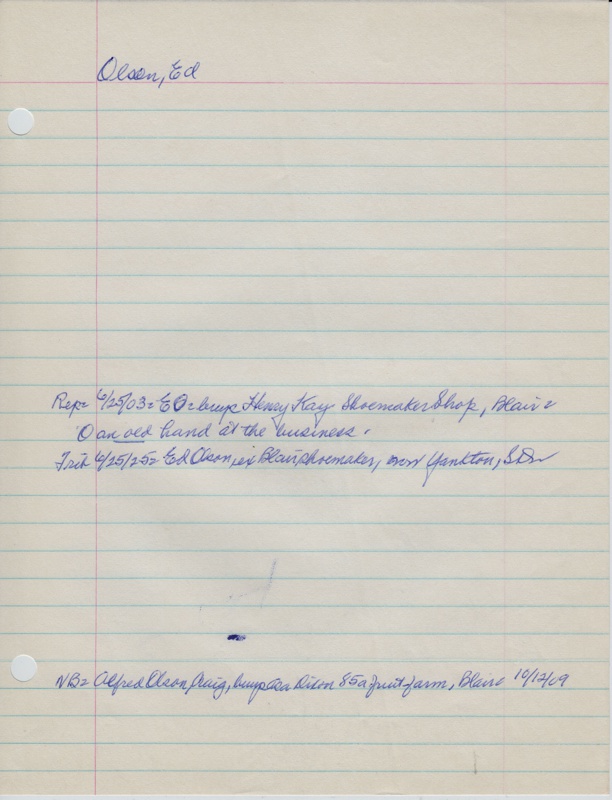 Olson, Ed
Rep= 6/25/03= EO= buys Henry Kay Shoemaker Shop, Blair=
O an old hand at the business.
Trib 6/25/25= Ed Olson, ex Blair shoemaker, now Yankton, SD
NB= Alfred Olson, Craig, buys Asa Dixon 85a fruit farm, Blair= 10/12/09